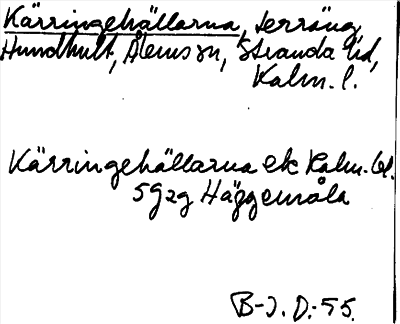 Kärringehällarna, terräng,
Hundhult, Ålems sn, Stranda hd,
Kalm. l.
Kärringehällarna ek Kalm. bl.
5G2g Häggemåla
B-J. D:-55.